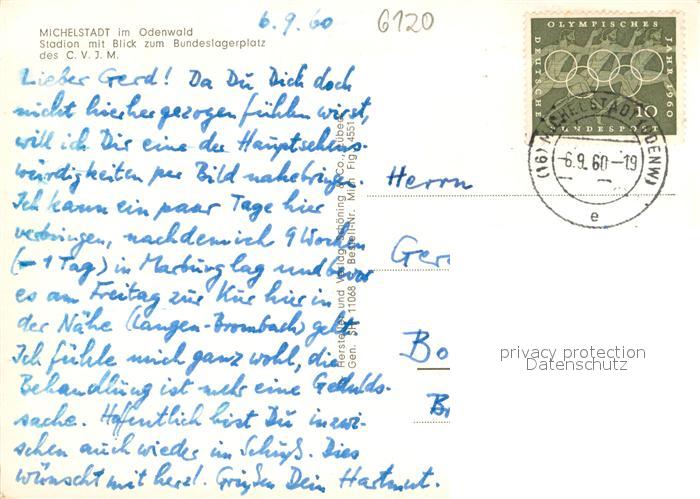 6.9.60
6120
MICHELSTADT im Odenwald
Stadion mit Blick zum Bundeslagerplatz
des C. V. J. M.
Lieber Gerd! Da Du Dich doch
nicht hierhergezogen fühlen wirst,
will ich Dir eine der Hauptsehens-
würdigkeiten per Bild nahebringen.
Ich kann ein paar Tage hier
verbringen, nachdem ich 9 Wochen
(- 1 Tag) in Marburg lag und bevor
es am Freitag zur Kur hier in
der Nähe (Langen-Brombach) geht.
Ich fühle mich ganz wohl, die
Behandlung ist mehr eine Gedulds-
sache. Hoffentlich bist Du inzwi-
schen auch wieder im Schuß. Dies
wünscht mit herzl. Grüßen Dein Hartmut.
Hersteller und Verlag Schöning & Co., Lübeck
Gen. SH 11068 Bestell-Nr. Mich.
Herrn
Ger
Bo
OLYMPISCHES
JAHR 1960
DEUTSCHE
BUNDESPOST
10
(16) MICHELSTADT (ODENW)
-6.9.60-19
e
privacy protection
Datenschutz